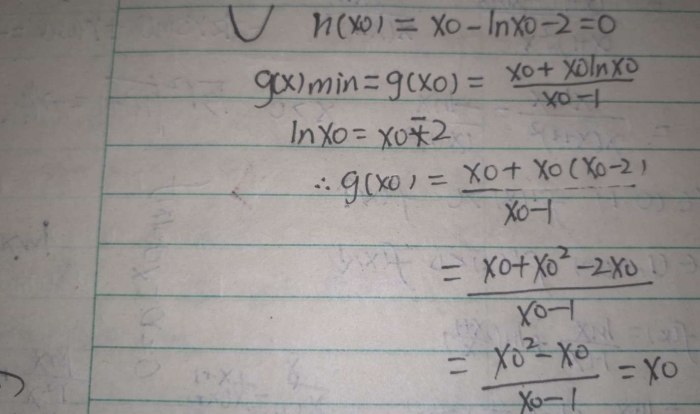 h(x0) = x0 - lnx0 - 2 = 0
g(x)min = g(x0) = (x0 + x0lnx0)/(x0 - 1)
lnx0 = x0 - 2
∴ g(x0) = (x0 + x0(x0 - 2))/(x0 - 1)
= (x0 + x0² - 2x0)/(x0 - 1)
= (x0² - x0)/(x0 - 1) = x0